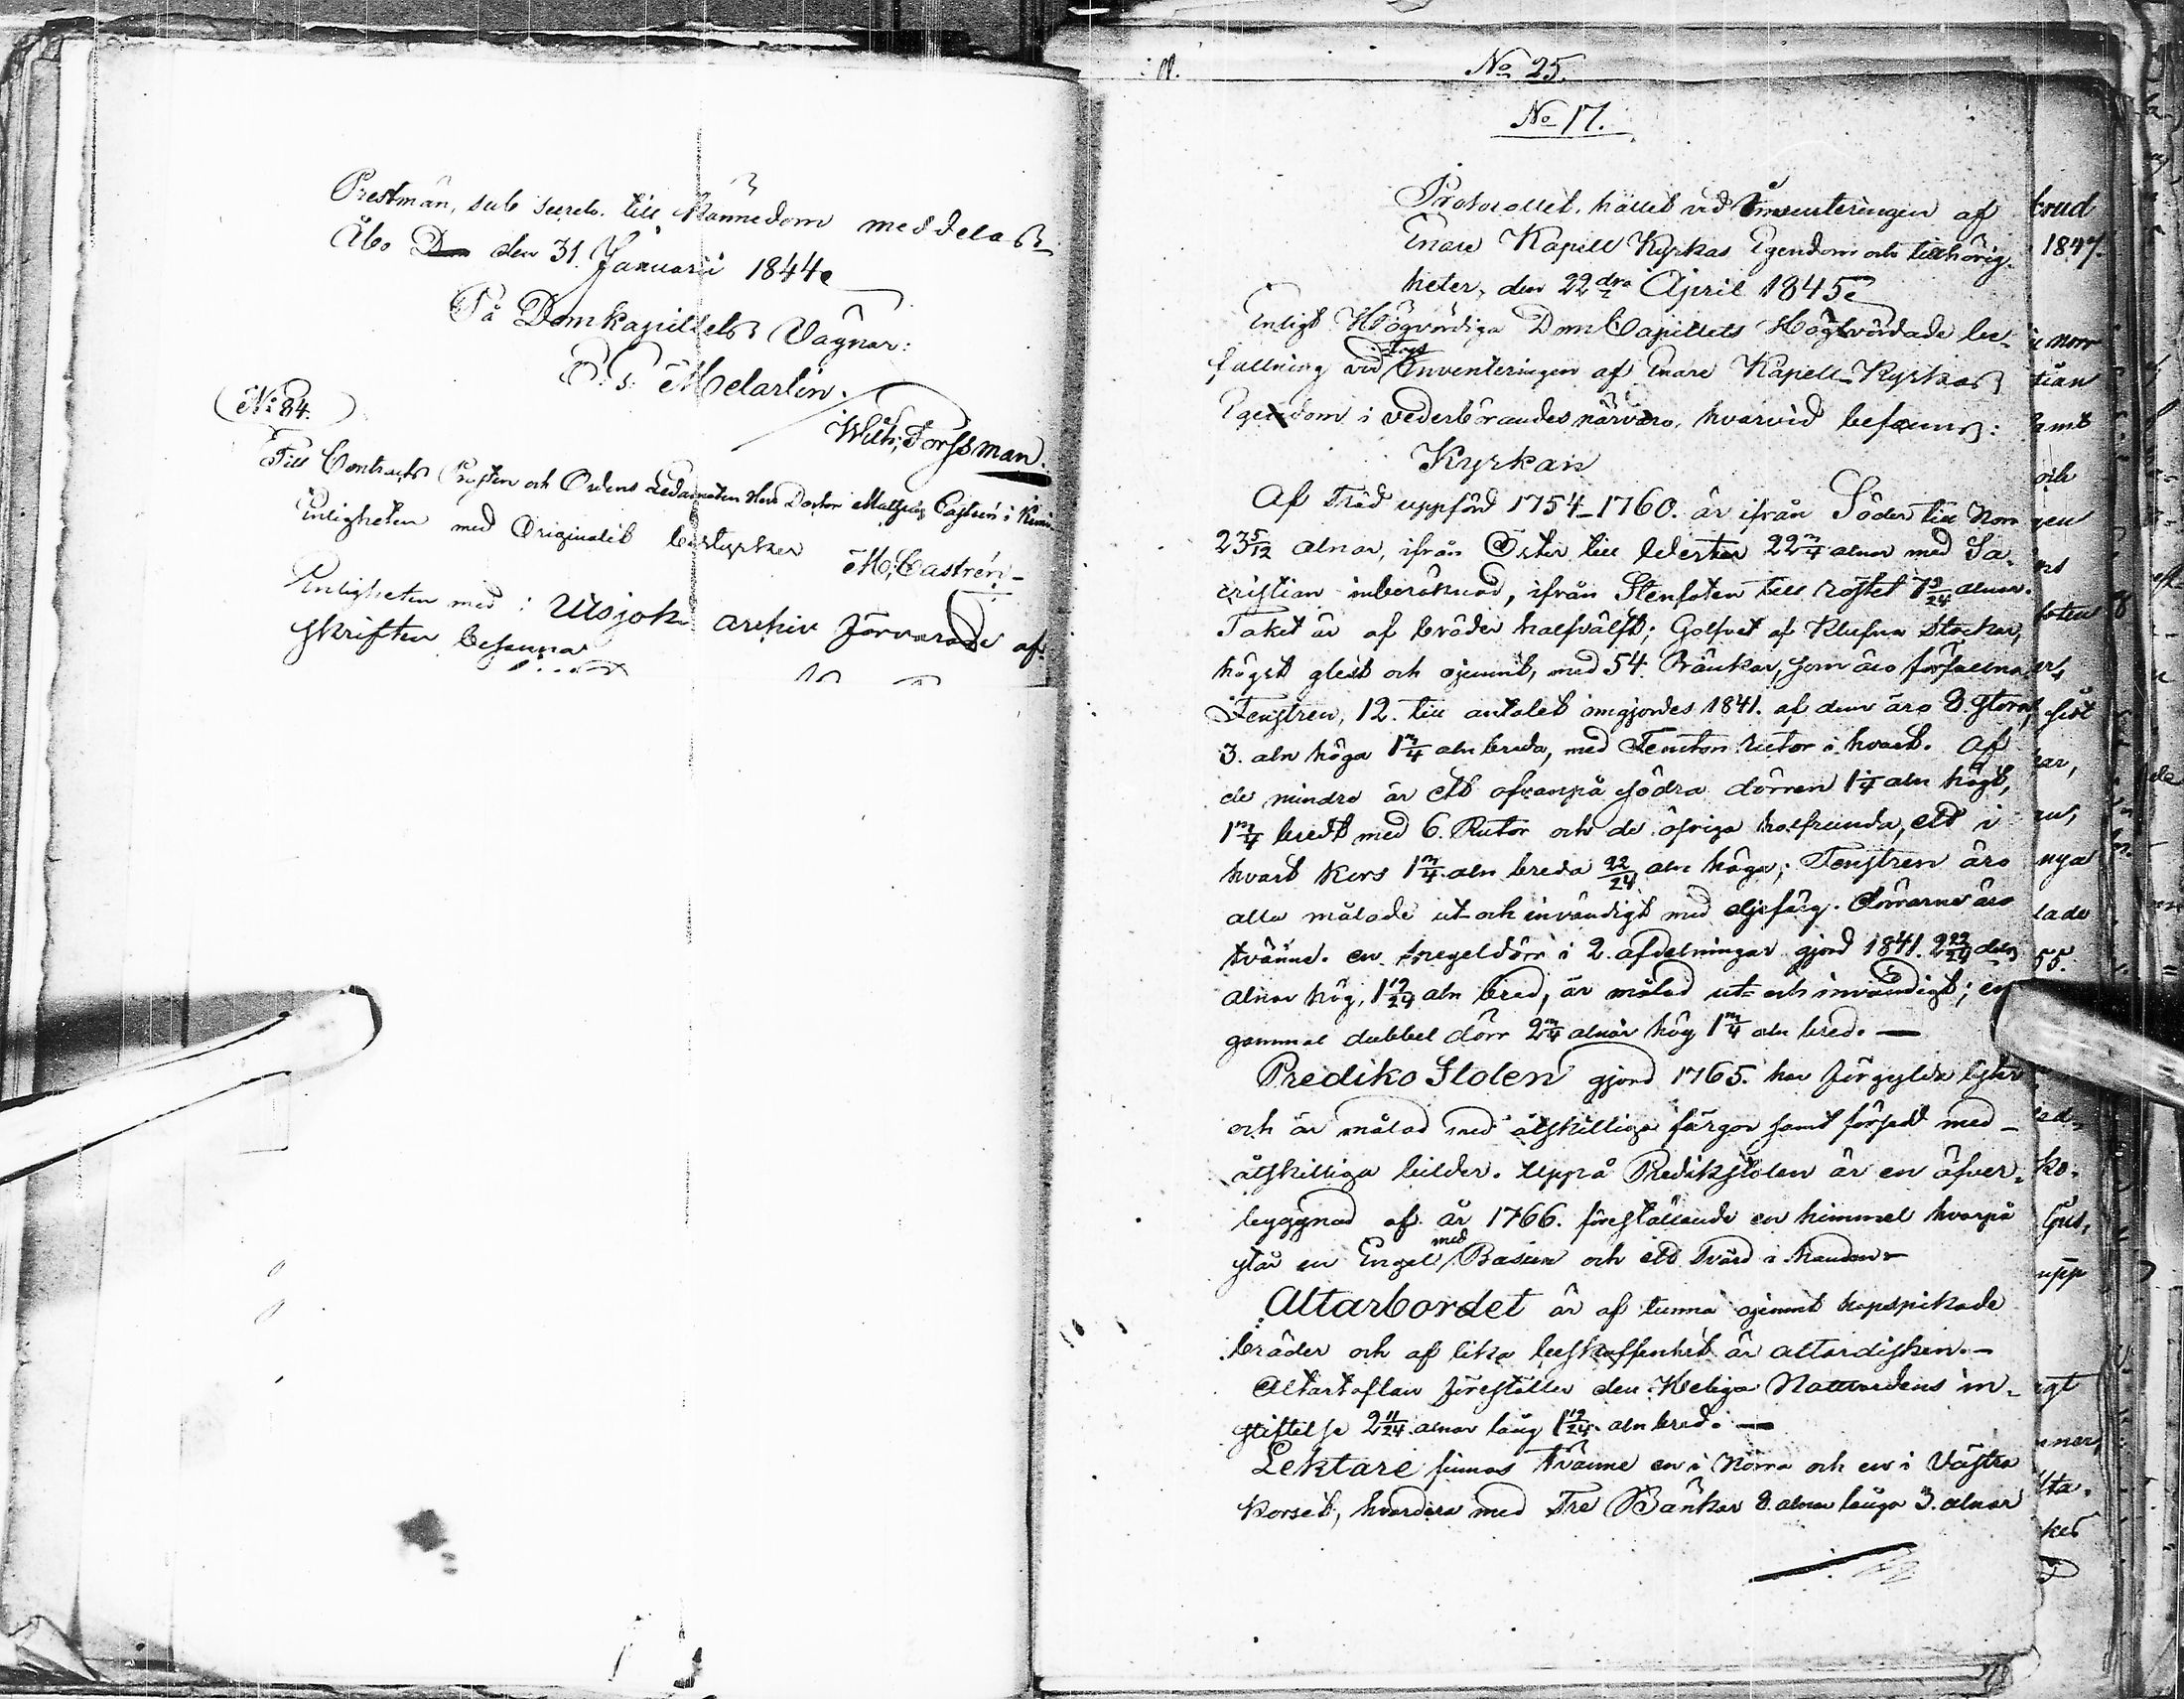 Prestmän, sub secreto. till kännedom meddelas
Åbo den 31. Januarii 1844.
På Domkapitlets Vägnar:
Melartin.
Wilh. Forssman.
(N: 84.)
Till Contracts Prosten och Ordens Ledamoten Herr Doctor Matthias Castrén i Kemi
Enligheten med Originalet bestyrker
M. Castrén
Enligheten med i Utsjoki archiv förvarade af-
skriften
No 25.
No 17.
Protocollet, hållet vid Inventeringen af
Enare Kapell Kyrkas Egendom och tillhörig-
heter, den 22dra April 1845.
Enligt Högvördiga DomCapitlets Högtvördade be-
fallning vid Inventeringen af Enare Kapell-Kyrkas
Egendom i vederbörandes närvaro, hvarvid befanns:
Kyrkan
Af Träd uppförd 1754-1760. är ifrån Söder till Norr
23 5/12 alnar, ifrån Öster till Wester 22 3/4 alnar med Sa-
cristian inberäknad, ifrån Stenfoten till röstet 7 9/24 alnar.
Taket är af bräder halfvälft; Golfvet af klufna Stockar,
högst glest och ojemnt, med 54. Bänkar, som äro förfallna.
Fenstren, 12. till antalet omgjordes 1841. af dem äro 8. stora,
3. aln höga 1 3/4 aln breda, med Femton rutor i hvart. Af
de mindre är ett ofvanpå södra dörren 1 1/4 aln högt,
1 3/4 bredt med 6. Rutor och de öfriga halfrunda, ett i
hvart kors 1 3/4 aln breda 22/24 aln höga; Fenstren äro
alla målade ut och invändigt med oljefärg. Dörrarne äro
tvänne. en spegeldörr i 2. afdelningar gjord 1841. 2 22/24
alnar hög, 1 19/24 aln bred, är målad ut- och invändigt; en
gammal dubbel dörr 2 3/4 alnar hög 1 3/4 aln bred. —
Prediko Stolen gjord 1765. har förgylda lister
och är målad med åtskilliga färgor samt försedd med
åtskilliga bilder. Uppå Predikstolen är en öfver-
byggnad af år 1766. föreställande en himmel hvarpå
står en Engel med Basun och ett Svärd i handen —
Altarbordet är af tunna ojemnt hopspikade
bräder och af lika beskaffenhet är altardisken. —
Altartaflan föreställer den Heliga Nattvardens in-
stiftelse 2 11/24 alnar lång 1 19/24 aln bred. —
Lektare finnas tvänne en i Norra och en i Västra
korset, hvardera med Tre Bänkar 8. alnar långa 3. alnar